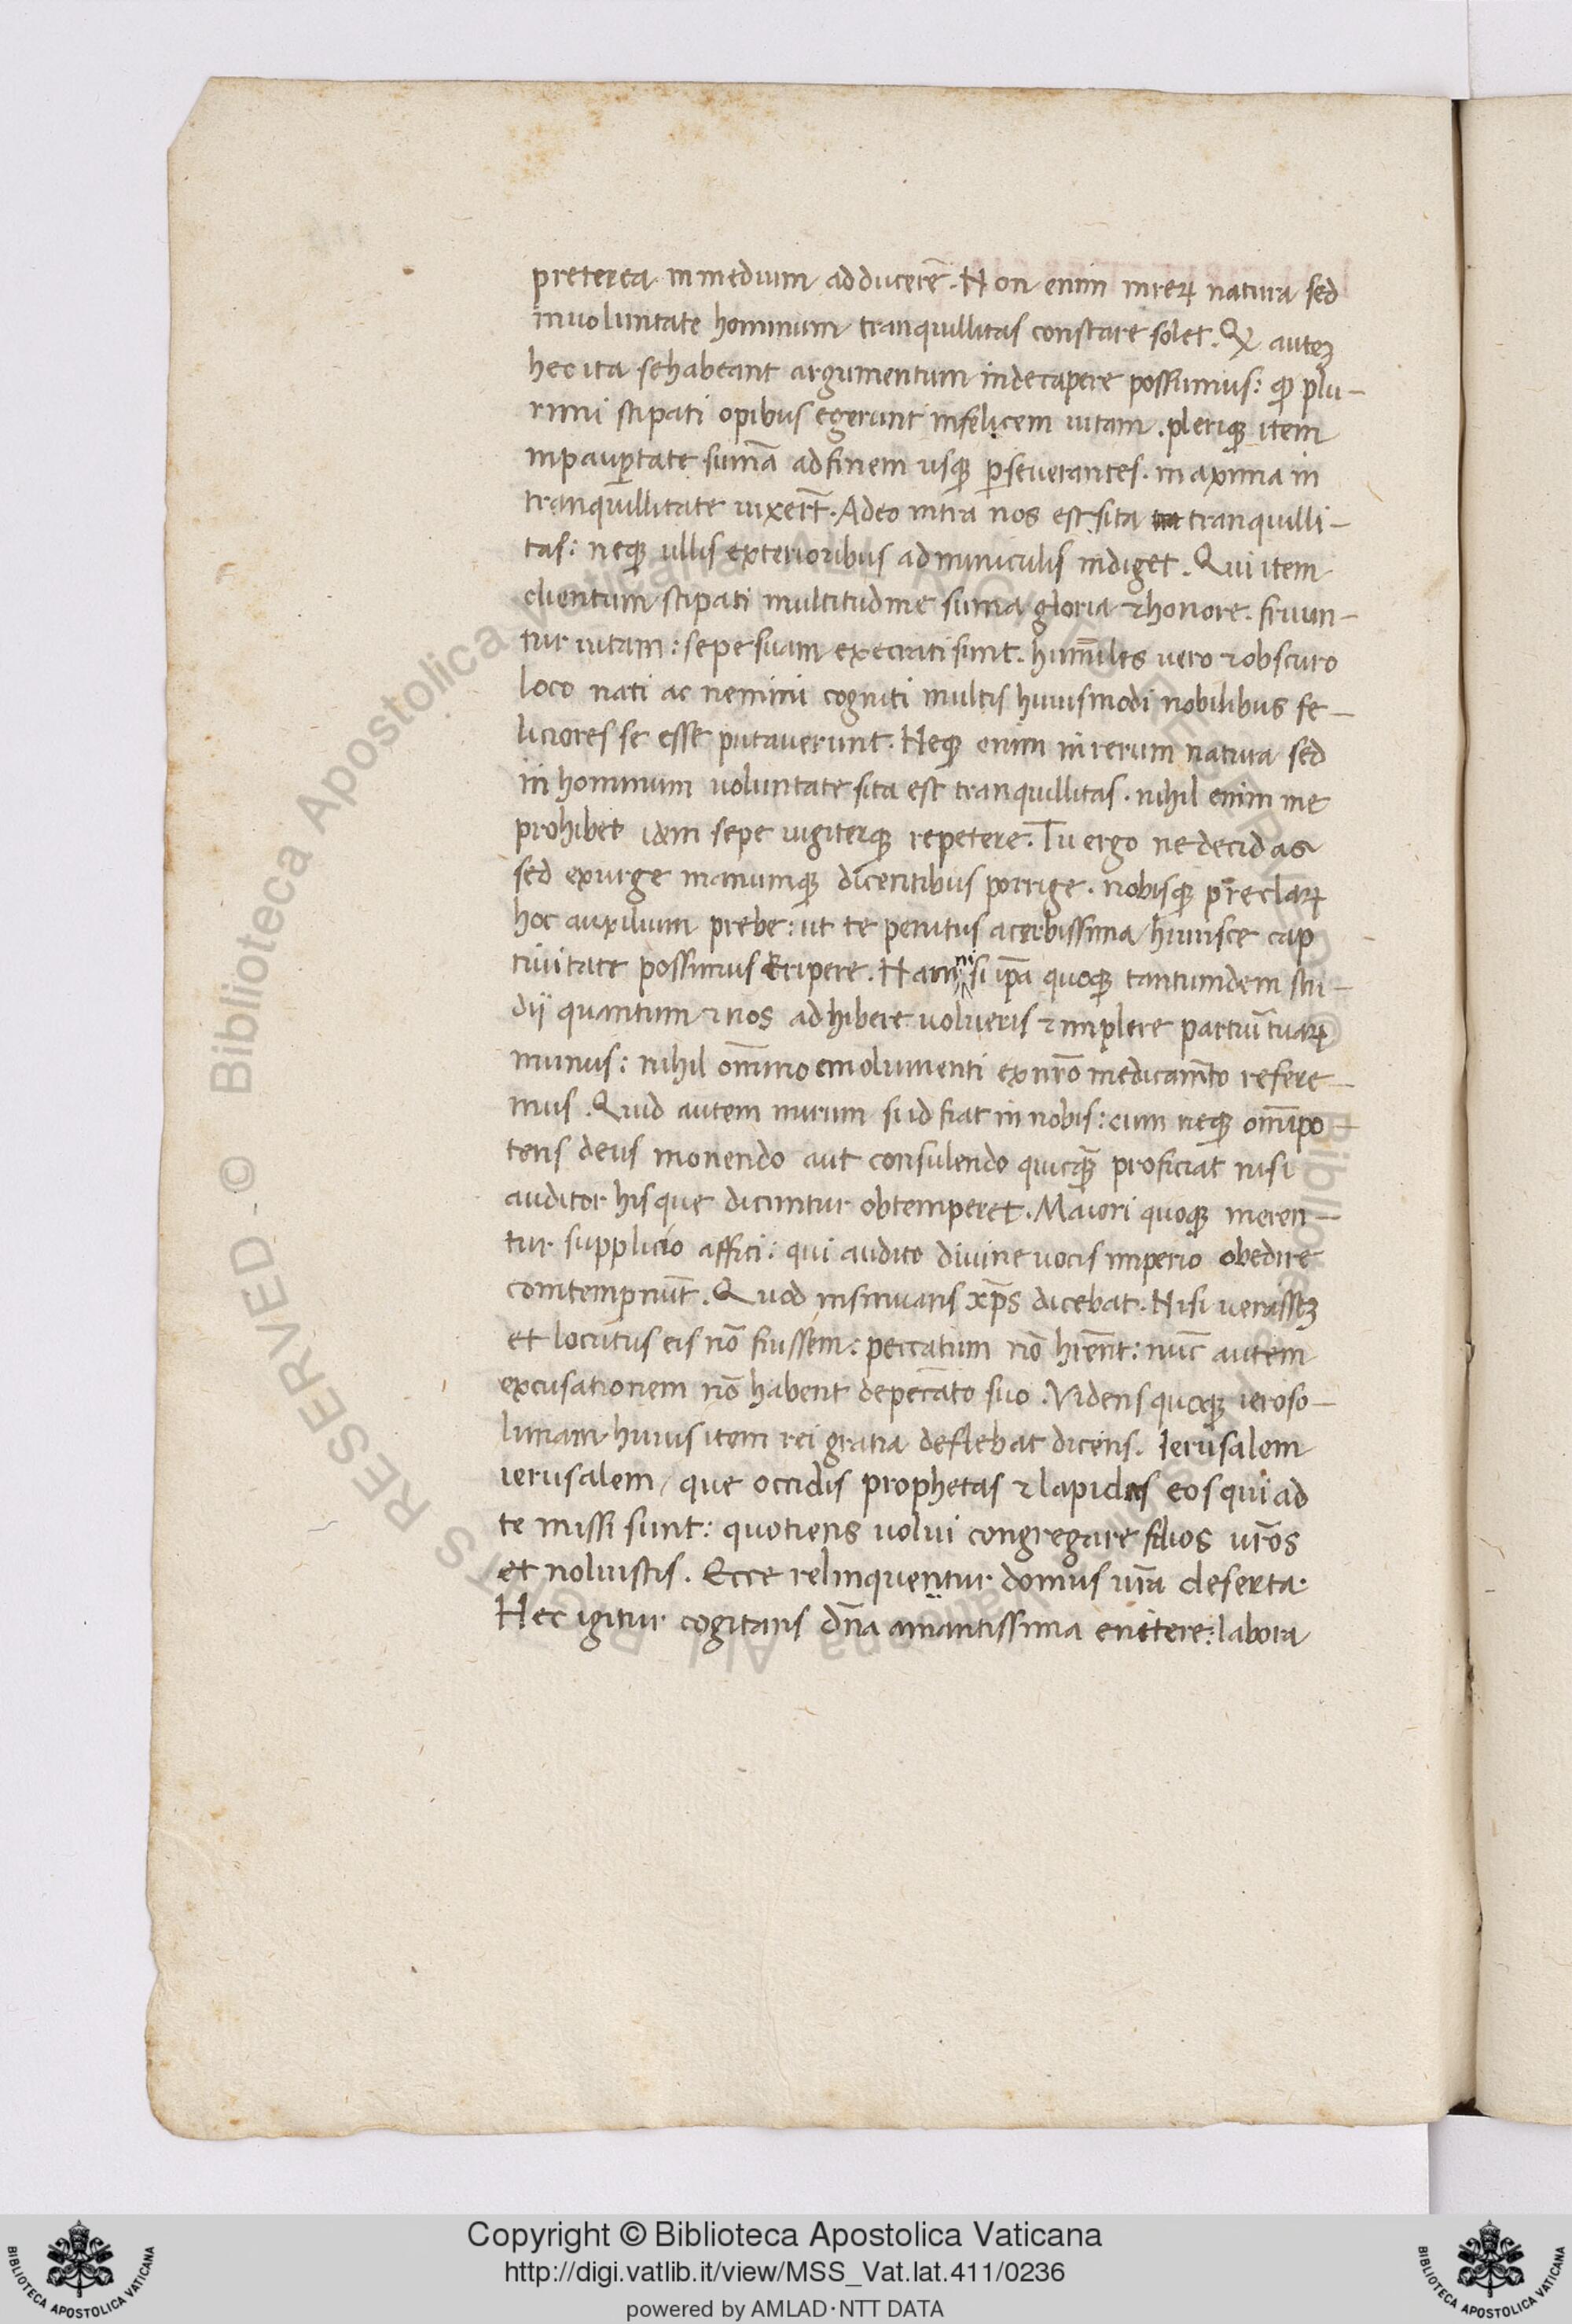 preterea in medium adducerē. Non enim in reꝝ natura sed
in uoluntate hominum tranquillitas constare solet. Qꝫ auteꝫ
hec ita se habeant argumentum inde capere possumus: qꝫ plu-
rimi stipati opibus egerunt infelicem uitam. pleriqꝫ item
in paup̱tate sum̄a ad finem usqꝫ p̱seuerantes. maxima in
tranquillitate uixer̄t. Adeo intra nos est sita tranquilli-
tas: neqꝫ ullis exterioribus adminiculis indiget. Qui item
clientum stipati multitudine suma gloria ⁊ honore. fruun-
tur uitam: sepe suam execrati sunt. humiles uero ⁊ obscuro
loco nati ac nemini cogniti multis huiusmodi nobilibus fe-
liciores se esse putauerunt. Neqꝫ enim in rerum natura sed
in hominum uoluntate sita est tranquillitas. nihil enim me
prohibet idem sepe iugiterqꝫ repetere. Tu ergo ne decidas
sed exurge manumqꝫ dicentibus porrige. nobisqꝫ preclarꝝ
hoc auxilium prebe: ut te penitus acerbissima huiusce cap
tiuitate possimus eripere. Nam ni si ip̄a quoqꝫ tantumdem stu-
dij quantum ⁊ nos adhibere uolueris ⁊ implere partiū tuaꝝ
munus: nihil om̄ino emolumenti ex nr̄o medicam̄to refere-
mus. Quid autem mirum si id fiat in nobis: cum neqꝫ om̄ipo-
tens deus monendo aut consulendo quicqꝫ̄ proficiat nisi
auditor his que dicuntur obtemperet. Maiori quoqꝫ meren-
tur supplicio affici: qui audito diuine uocis imperio obedire
comtempnūt. Quod insinuans xp̄s dicebat. Nisi uenisseꝫ
et locutus eis nō fuissem: peccatum nō hr̄ent: nūc autem
excusationem nō habent de peccāto suo. Videns quoqꝫ ieroso-
limam huius item rei gratia deflebat dicens. Ierusalem
ierusalem, que occidis prophetas ⁊ lapidas eos qui ad
te missi sunt: quotiens uolui congregare filios ur̄os
et noluistis. Ecce relinquentur domus ur̄a deserta.
Hec igitur cogitans dn̄a amantissima enitere: labora
Copyright © Biblioteca Apostolica Vaticana
http://digi.vatlib.it/view/MSS_Vat.lat.411/0236
powered by AMLAD·NTT DATA